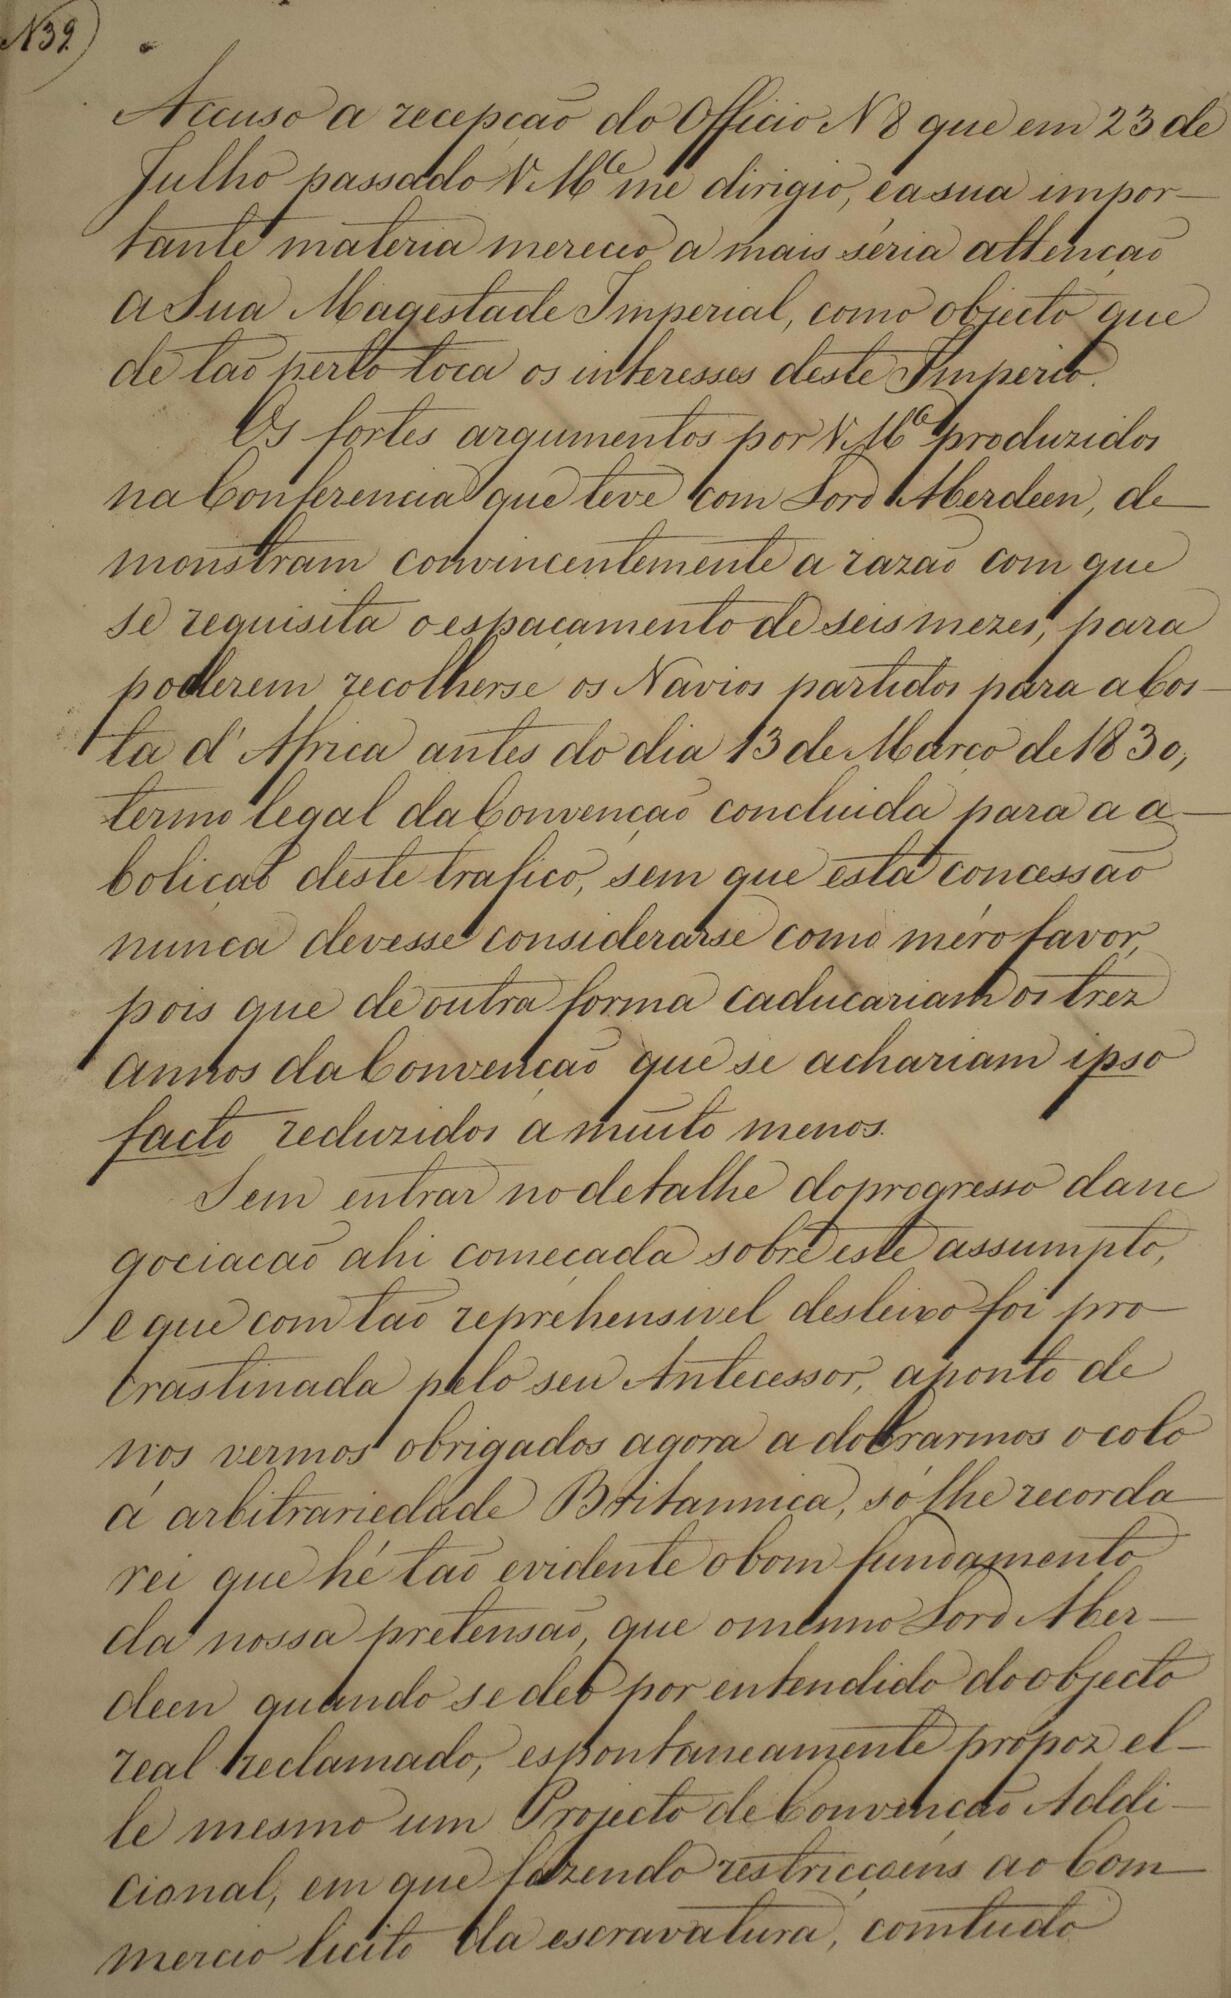 N 39.
Accuso a recepção do Officio N 8 que em 23 de
Julho passado V. M.ce me dirigio, e a sua impor-
tante materia mereceo a mais séria attenção
a Sua Magestade Imperial, como objecto que
de tão perto toca os interesses deste Imperio.
Os fortes argumentos por V. M.ce produzidos
na Conferencia que teve com Lord Aberdeen, de-
monstram convincentemente a razão com que
se requisita o espaçamento de seis mezes, para
poderem recolherse os Navios partidos para a Cos-
ta d'Africa antes do dia 13 de Março de 1830,
termo legal da Convenção concluida para a a-
boliçaõ deste trafico, sem que esta concessão
nunca devesse considerarse como méro favor,
pois que de outra forma caducariam os trez
annos da Convenção que se achariam ipso
facto reduzidos a muito menos.
Sem entrar no detalhe do progresso da ne
gociacão ahi começada sobre este assumpto,
e que com tão reprehensivel desleixo foi pro-
crastinada pelo seu Antecessor, a ponto de
nos vermos obrigados agora a dobrarmos o colo
á arbitrariedade Britannica, só lhe recorda
rei que hé tão evidente o bom fundamento
da nossa pretensão, que o mesmo Lord Aber-
deen quando se deo por entendido do objecto
real reclamado, espontaneamente propoz el-
le mesmo um Projecto de Convenção Addi-
cional, em que fazendo restricçoens ao Com-
mercio licito da escravatura, comtudo